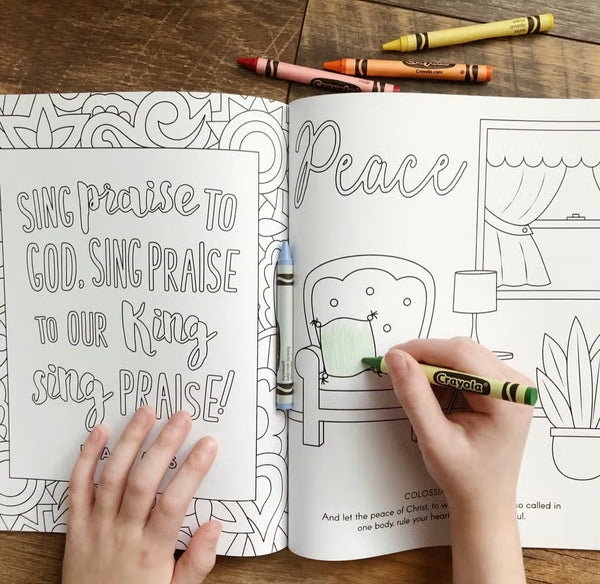 SING praise TO
GOD, SING PRAISE
TO OUR King
sing PRAISE!
Peace
COLOSSIA
And let the peace of Christ, to w so called in
one body, rule your hear ul.
Crayola
Crayola
Crayola.com
Crayola